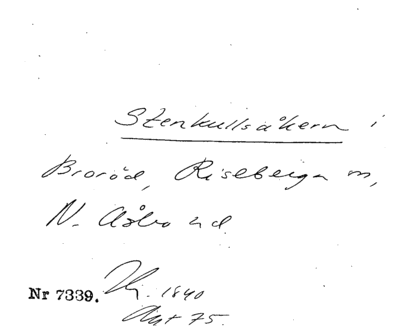 Stenkullsåkern i
Broröd, Riseberga sn,
N. Åsbo hd
Nr 7339. Hy. 1840
Akt 75.